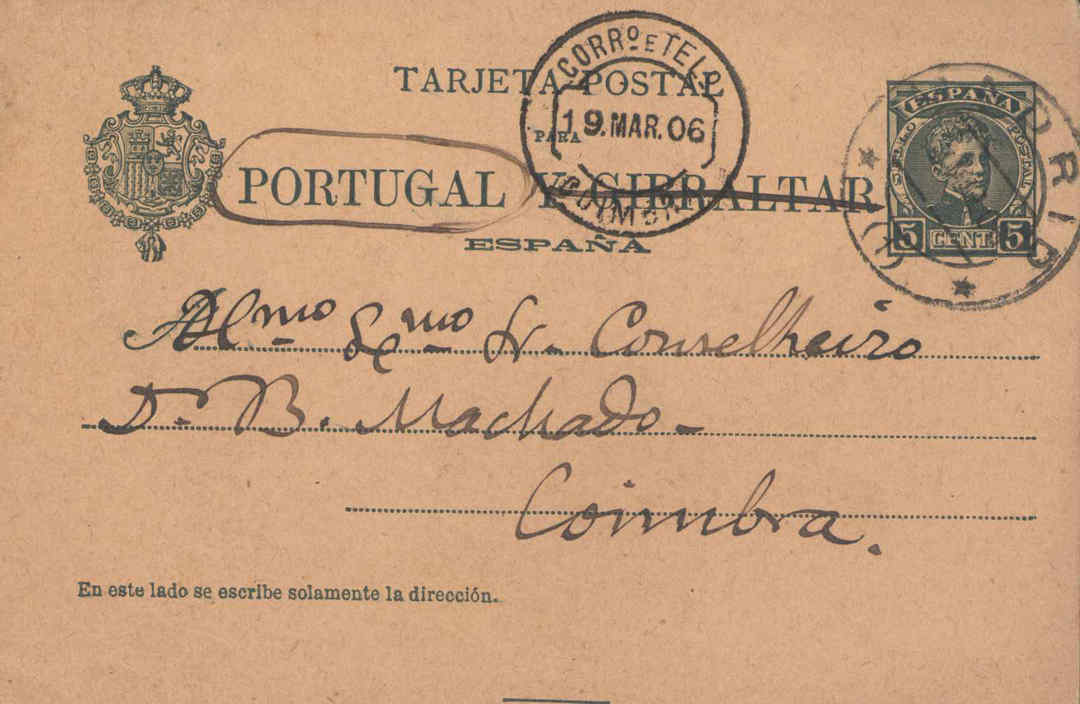 TARJETA POSTAL
CORRO E TELO
19. MAR. 06
COIMBRA
PARA
PORTUGAL Y GIBRALTAR
ESPAÑA
ESPAÑA
POSTAL
5 CENT. 5
MADRID
Illmo Exmo Sr. Conselheiro
Dr. B. Machado
Coimbra.
En este lado se escribe solamente la dirección.